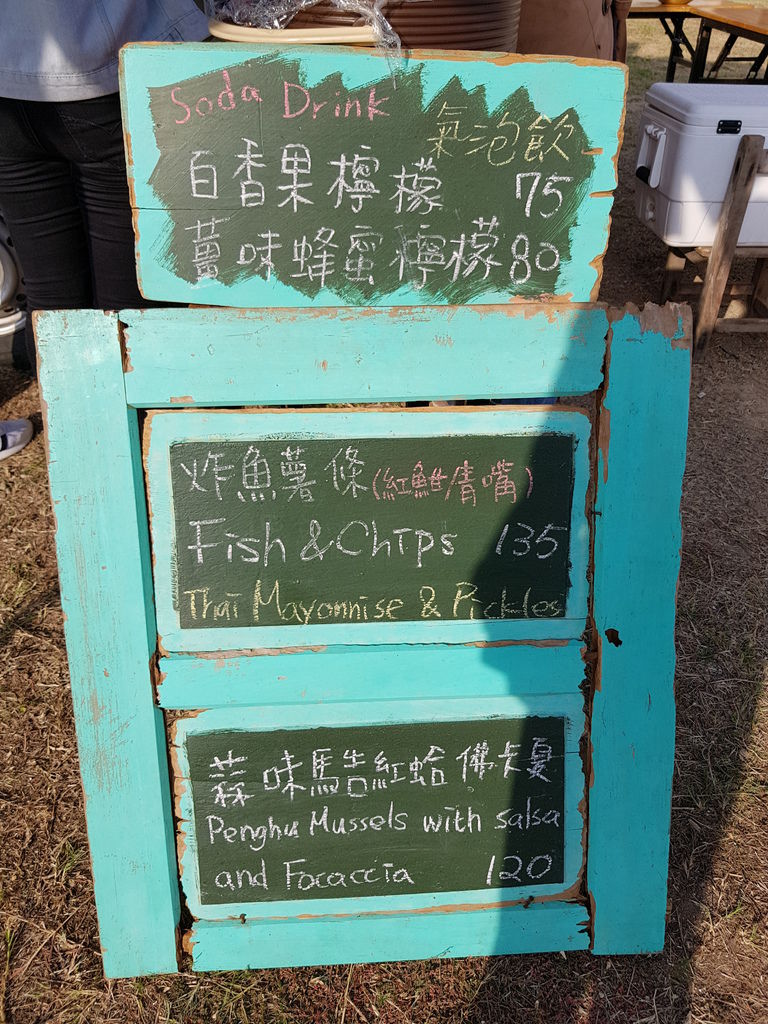 Soda Drink
氣泡飲
百香果檸檬 75
薑味蜂蜜檸檬 80
炸魚薯條(紅魽青嘴)
Fish & Chips 135
Thai Mayonnise & Pickles
蒜味馬告紅蛤佛卡夏
Penghu Mussels with salsa
and Focaccia 120